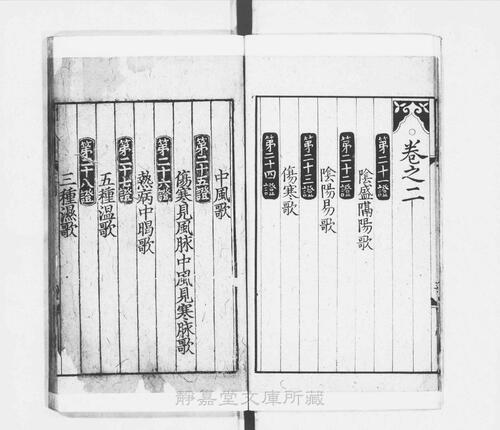 卷之二
第二十一證
陰盛隔陽歌
第二十二證
陰陽易歌
第二十三證
傷寒歌
第二十四證
中風歌
第二十五證
傷寒見風脉中風見寒脉歌
第二十六證
熱病中暍歌
第二十七證
五種温歌
第二十八證
三種濕歌
靜嘉堂文庫所藏